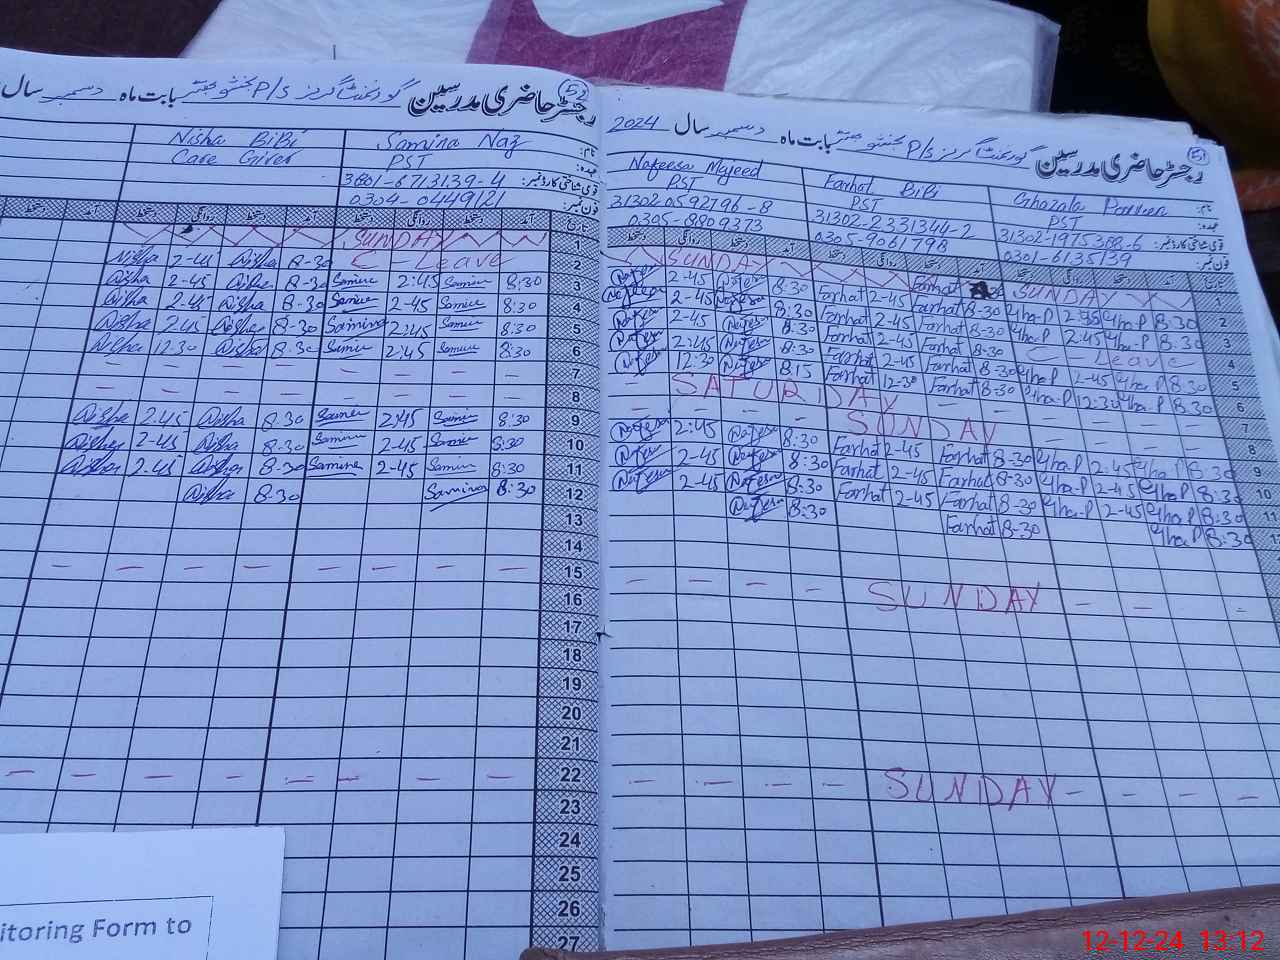 رجسٹر حاضری مدرسین گورنمنٹ گرلز P/S بابت ماہ دسمبر سال
52
Nisha BiBi Samina Naz نام:
Care Giver PST عہدہ:
3801-6713139-4 قومی شناختی کارڈ نمبر:
0304-0449121 فون نمبر:
دستخط آمد دستخط روانگی دستخط آمد دستخط روانگی دستخط آمد تاریخ
SUNDAY 1
Nisha 2-45 Nisha 8-30 C-Leave 2
Nisha 2-45 Nisha 8-30 Samina 2:45 Samina 8:30 3
Nisha 2-45 Nisha 8-30 Samina 2-45 Samina 8:30 4
Nisha 2:45 Nisha 8-30 Samina 2:45 Samina 8:30 5
Nisha 12:30 Nisha 8:30 Samina 2:45 Samina 8:30 6
— — — — — — — 7
— — — — — — — 8
Nisha 2:45 Nisha 8.30 Samina 2:45 Samina 8:30 9
Nisha 2-45 Nisha 8.30 Samina 2-45 Samina 8:30 10
Nisha 2-45 Nisha 8-30 Samina 2-45 Samina 8:30 11
Nisha 8.30 Samina 8:30 12
13
14
— — — — — — — 15
16
17
18
19
20
21
— — — — — — — — 22
23
24
25
26
27
رجسٹر حاضری مدرسین گورنمنٹ گرلز P/S بابت ماہ دسمبر سال 2024
51
Nafeesa Majeed Farhat BiBi Ghazala Parveen نام:
PST PST PST عہدہ:
31302-0592796-8 31302-2331344-2 31302-1975388-6 قومی شناختی کارڈ نمبر:
0305-8809373 0305-9061798 0301-6135139 فون نمبر:
دستخط روانگی دستخط آمد دستخط روانگی دستخط آمد دستخط روانگی دستخط آمد تاریخ
SUNDAY SUNDAY
Nafeesa 2-45 Nafeesa 8:30 Farhat 2-45 Farhat 8-30 Gha-P 2:45 Gha-P 8:30 2
Nafeesa 2-45 Nafeesa 8:30 Farhat 2-45 Farhat 8-30 Gha-P 2:45 Gha-P 8:30 3
Nafeesa 2-45 Nafeesa 8:30 Farhat 2-45 Farhat 8-30 C Leave 4
Nafeesa 2:45 Nafeesa 8:30 Farhat 2-45 Farhat 8-30 Gha-P 2-45 Gha-P 8:30 5
Nafeesa 12:30 Nafeesa 8:15 Farhat 12-30 Farhat 8-30 Gha-P 12:30 Gha-P 8:30 6
— SATURDAY — — — — 7
— — — — SUNDAY — — — 8
Nafeesa 2:45 Nafeesa 8:30 Farhat 2-45 Farhat 8-30 Gha-P 2:45 Gha-P 8:30 9
Nafeesa 2-45 Nafeesa 8:30 Farhat 2-45 Farhat 8-30 Gha-P 2-45 Gha-P 8:30 10
Nafeesa 2-45 Nafeesa 8:30 Farhat 2-45 Farhat 8-30 Gha-P 2-45 Gha-P 8:30 11
Nafeesa 8:30 Farhat 8-30 Gha-P 8:30
— — — — SUNDAY — — —
— — — — SUNDAY — — — —
itoring Form to
12-12-24 13:12